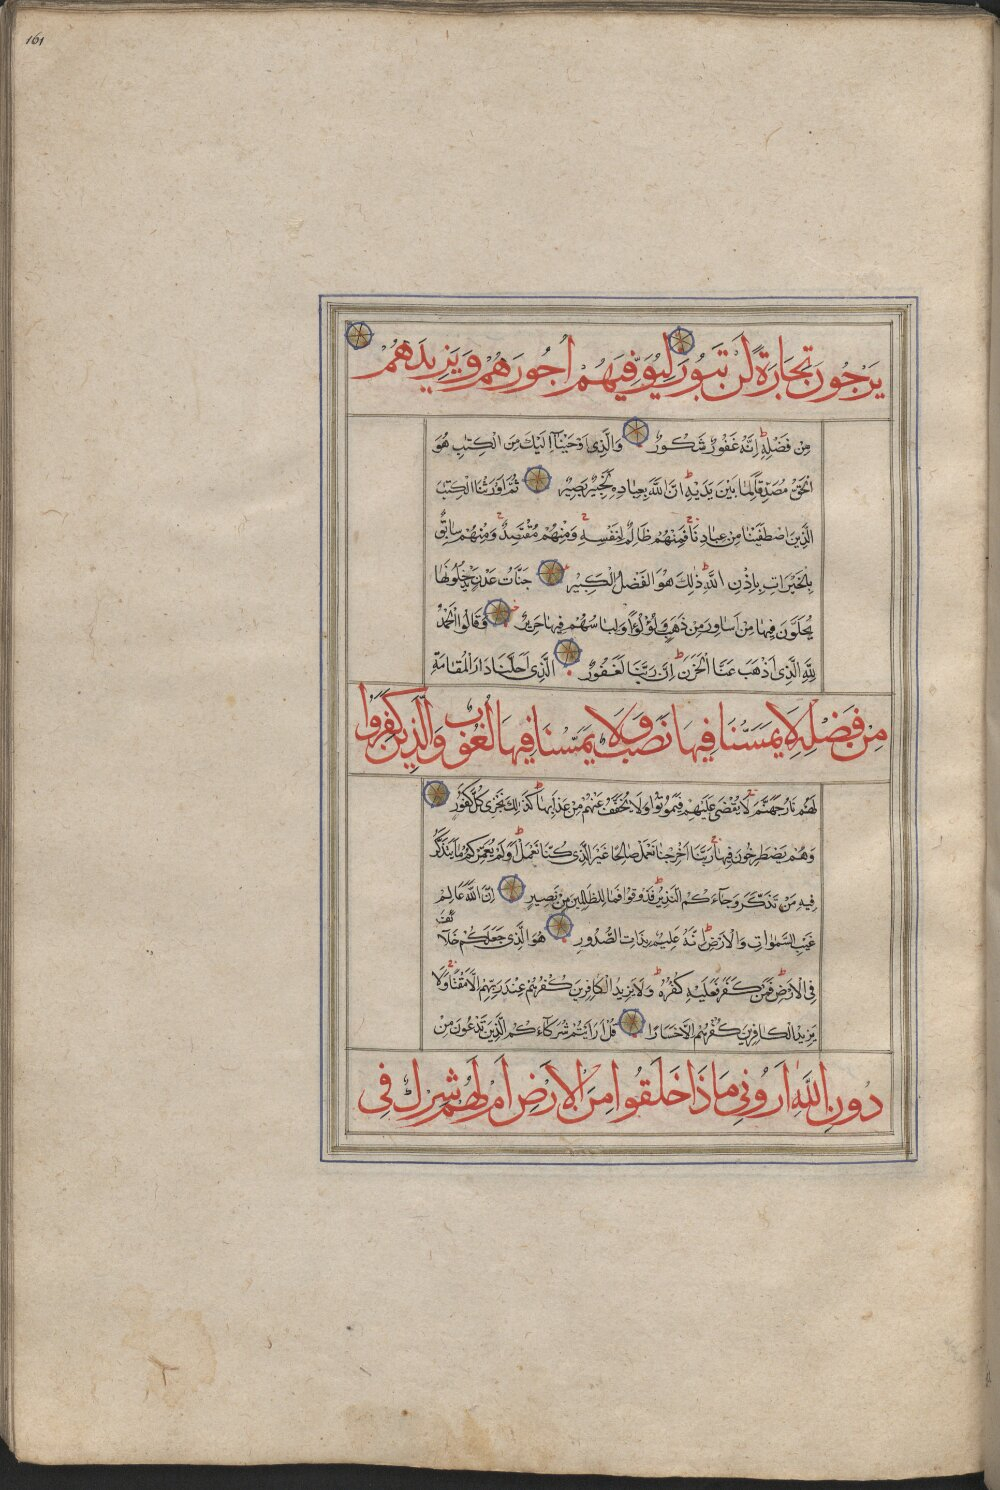 161
يَرْجُونَ تِجَارَةً لَنْ تَبُورَ لِيُوَفِّيَهُمْ اُجُورَهُمْ وَيَزِيدَهُمْ
مِنْ فَضْلِهِ اِنَّهُ غَفُورٌ شَكُورٌ وَالَّذِى اَوْحَيْنَآ اِلَيْكَ مِنَ الْكِتٰبِ هُوَ
الْحَقُّ مُصَدِّقًا لِمَا بَيْنَ يَدَيْهِ اِنَّ اللّٰهَ بِعِبَادِهِ لَخَبِيرٌ بَصِيرٌ ثُمَّ اَوْرَثْنَا الْكِتٰبَ
الَّذِينَ اصْطَفَيْنَا مِنْ عِبَادِنَا فَمِنْهُمْ ظَالِمٌ لِنَفْسِهِ وَمِنْهُمْ مُقْتَصِدٌ وَمِنْهُمْ سَابِقٌ
بِالْخَيْرَاتِ بِاِذْنِ اللّٰهِ ذٰلِكَ هُوَ الْفَضْلُ الْكَبِيرُ جَنَّاتُ عَدْنٍ يَدْخُلُونَهَا
يُحَلَّوْنَ فِيهَا مِنْ اَسَاوِرَ مِنْ ذَهَبٍ وَلُؤْلُؤًا وَلِبَاسُهُمْ فِيهَا حَرِيرٌ وَقَالُوا الْحَمْدُ
لِلّٰهِ الَّذِى اَذْهَبَ عَنَّا الْحَزَنَ اِنَّ رَبَّنَا لَغَفُورٌ الَّذِى اَحَلَّنَا دَارَ الْمُقَامَةِ
مِنْ فَضْلِهِ لَا يَمَسُّنَا فِيهَا نَصَبٌ وَلَا يَمَسُّنَا فِيهَا لُغُوبٌ وَالَّذِينَ كَفَرُوا
لَهُمْ نَارُ جَهَنَّمَ لَا يُقْضٰى عَلَيْهِمْ فَيَمُوتُوا وَلَا يُخَفَّفُ عَنْهُمْ مِنْ عَذَابِهَا كَذٰلِكَ نَجْزِى كُلَّ كَفُورٍ
وَهُمْ يَصْطَرِخُونَ فِيهَا رَبَّنَا اَخْرِجْنَا نَعْمَلْ صَالِحًا غَيْرَ الَّذِى كُنَّا نَعْمَلُ اَوَلَمْ نُعَمِّرْكُمْ مَا يَتَذَكَّرُ
فِيهِ مَنْ تَذَكَّرَ وَجَآءَكُمُ النَّذِيرُ فَذُوقُوا فَمَا لِلظَّالِمِينَ مِنْ نَصِيرٍ اِنَّ اللّٰهَ عَالِمُ
غَيْبِ السَّمٰوَاتِ وَالْاَرْضِ اِنَّهُ عَلِيمٌ بِذَاتِ الصُّدُورِ هُوَ الَّذِى جَعَلَكُمْ خَلَآئِفَ
فِى الْاَرْضِ فَمَنْ كَفَرَ فَعَلَيْهِ كُفْرُهُ وَلَا يَزِيدُ الْكَافِرِينَ كُفْرُهُمْ عِنْدَ رَبِّهِمْ اِلَّا مَقْتًا وَلَا
يَزِيدُ الْكَافِرِينَ كُفْرُهُمْ اِلَّا خَسَارًا قُلْ اَرَاَيْتُمْ شُرَكَآءَكُمُ الَّذِينَ تَدْعُونَ مِنْ
دُونِ اللّٰهِ اَرُونِى مَاذَا خَلَقُوا مِنَ الْاَرْضِ اَمْ لَهُمْ شِرْكٌ فِى